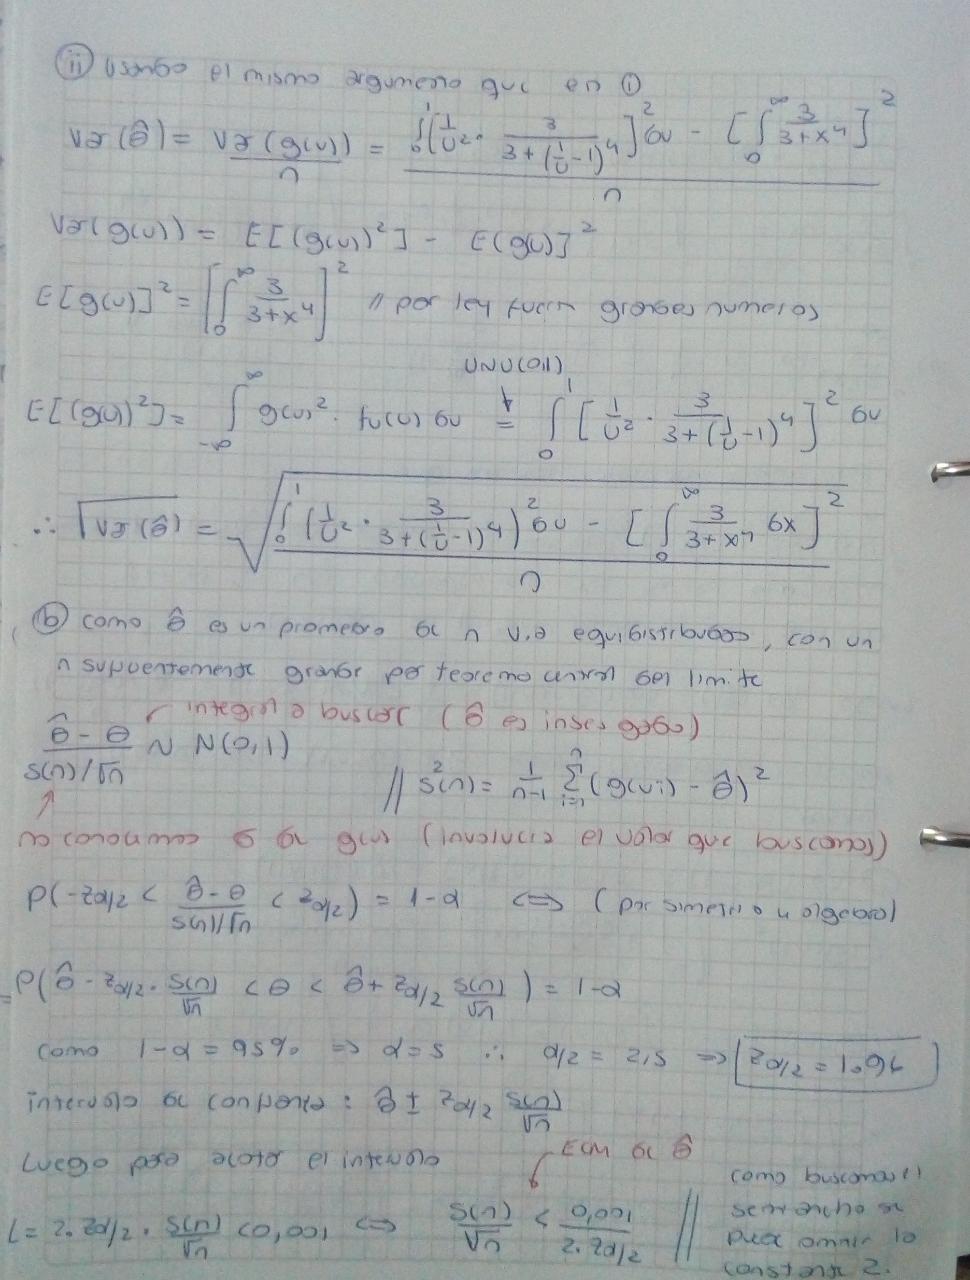 ii) Usando el mismo argumento que en ①
Var(θ̂) = Var(g(u)) / n = ( ∫₀¹ [1/u² · 3/(3+(1/u-1)⁴)]² du - [∫₀^∞ 3/(3+x⁴)]² ) / n
Var(g(u)) = E[(g(u))²] - E(g(u)]²
E[g(u)]² = [∫₀^∞ 3/(3+x⁴)]² // por ley fuerte grandes numeros
U~U(0,1)
E[(g(u))²] = ∫_{-∞}^{∞} g(u)² · fu(u) du = ∫₀¹ [1/u² · 3/(3+(1/u-1)⁴)]² du
∴ √Var(θ̂) = √( ( ∫₀¹ (1/u² · 3/(3+(1/u-1)⁴)² du - [∫₀^∞ 3/(3+x⁴) dx]² ) / n )
b) como θ̂ es un promedio de n v.a equidistribudas, con un
n suficientemente grande por teorema central del limite
integral a buscar (θ̂ es insesgado)
(θ̂ - θ) / (S(n)/√n) ~ N(0,1) // S²(n) = 1/(n-1) Σ_{i=1}^{n} (g(ui) - θ̂)²
no conocemos σ de g(u) (involucra el valor que buscamos)
P(-zα/2 < (θ̂ - θ)/(S(n)/√n) < zα/2) = 1-α ⟺ (por simetria y algebra)
= P(θ̂ - zα/2 · S(n)/√n < θ < θ̂ + zα/2 S(n)/√n) = 1-α
como 1-α = 95% => α=5 ∴ α/2 = 2,5 => zα/2 = 1.96
intervalo de confianza : θ̂ ± zα/2 S(n)/√n
Luego para acotar el intervalo
ECM de θ̂
L = 2·zα/2 · S(n)/√n < 0,001 ⟺ S(n)/√n < 0,001/(2·zα/2)
como buscamos el
semiancho se
puede omitir la
constante 2.